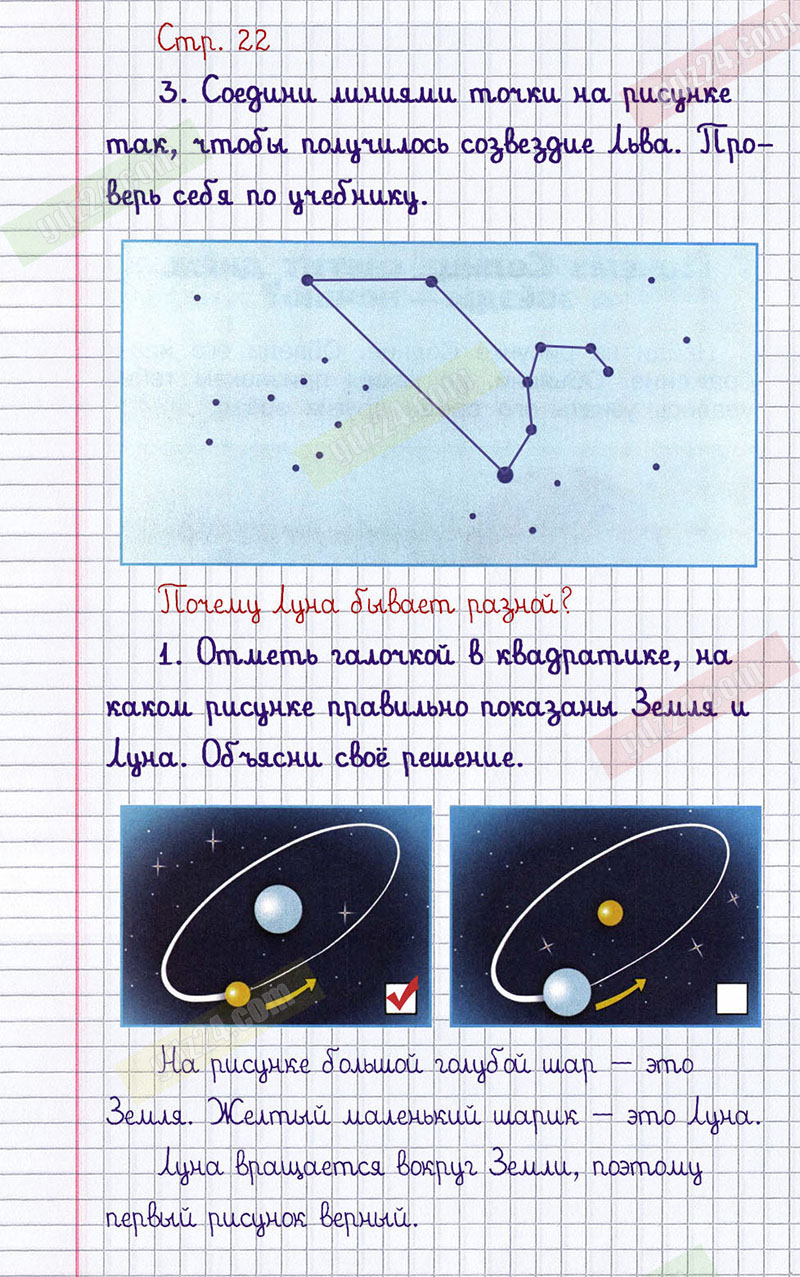 Стр. 22
3. Соедини линиями точки на рисунке
так, чтобы получилось созвездие Льва. Про-
верь себя по учебнику.
Почему Луна бывает разной?
1. Отметь галочкой в квадратике, на
каком рисунке правильно показаны Земля и
Луна. Объясни своё решение.
На рисунке большой голубой шар — это
Земля. Желтый маленький шарик — это Луна.
Луна вращается вокруг Земли, поэтому
первый рисунок верный.
gdz24.com
gdz24.com
gdz24.com
gdz24.com
gdz24.com